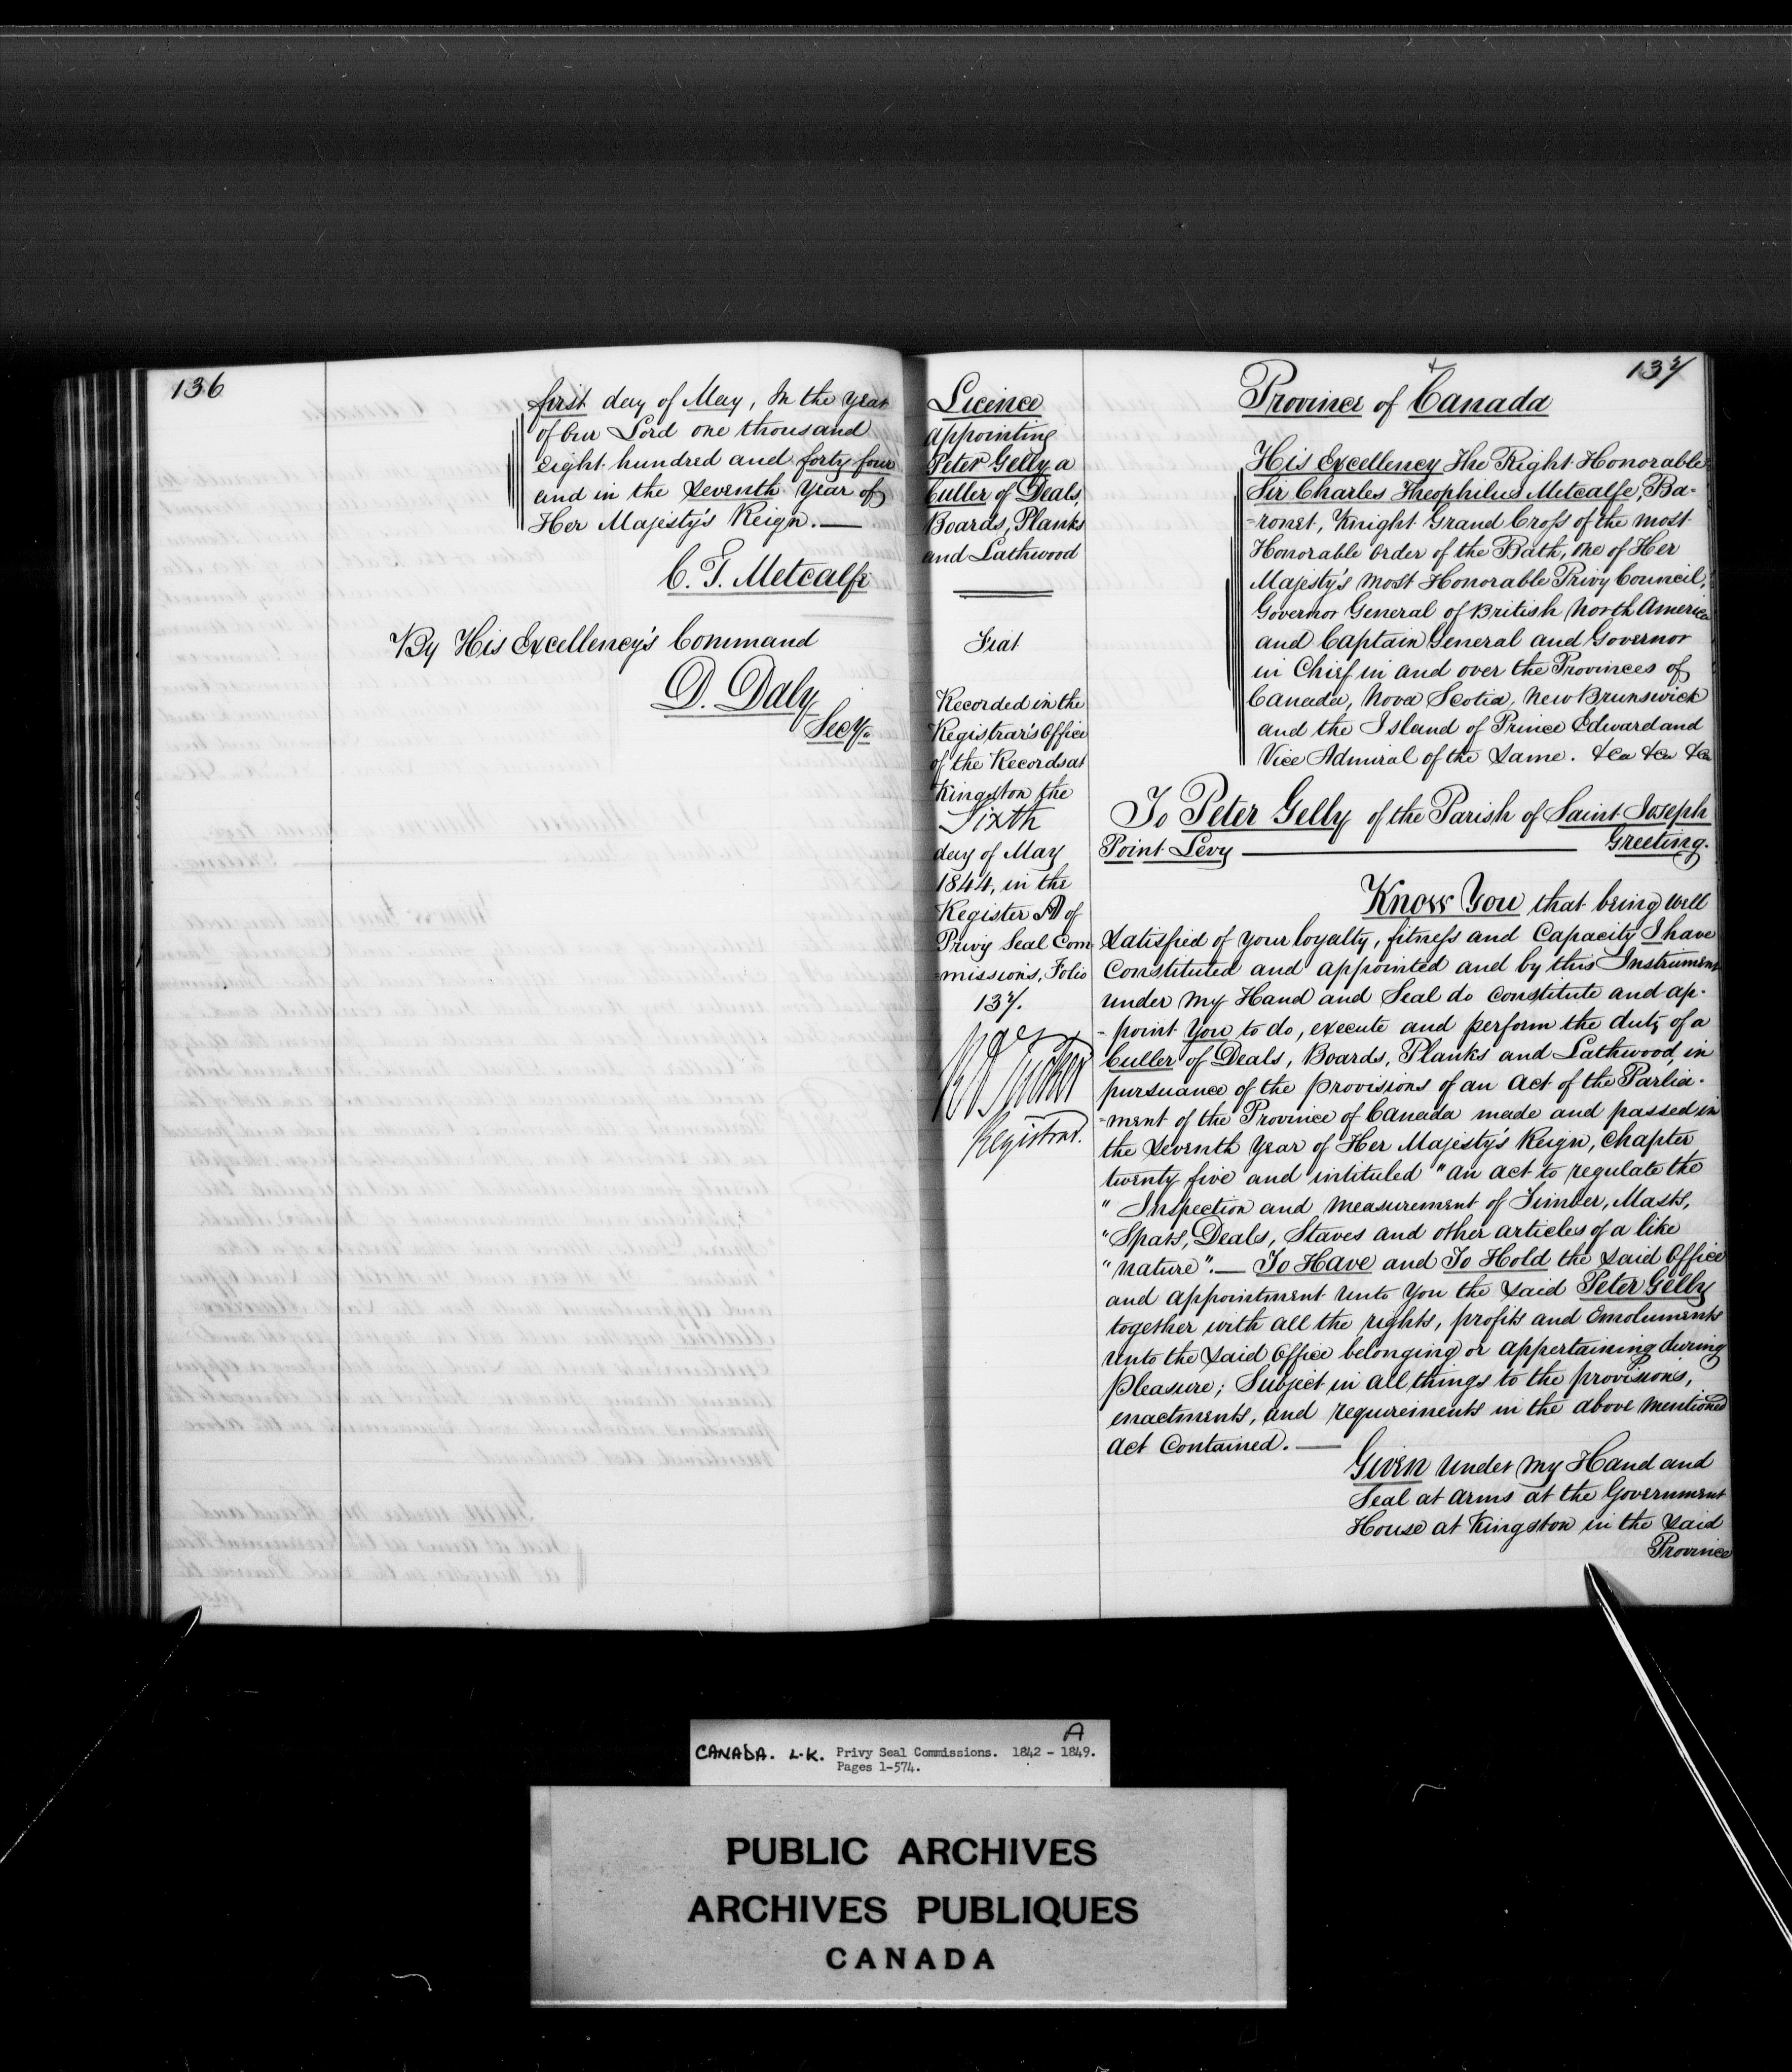 136
first day of May, In the year
of Our Lord one thousand
eight hundred and forty four
and in the Seventh Year of
Her Majesty's Reign.—
C. T. Metcalfe
By His Excellency's Command
D. Daly
Secy.
137
Licence
appointing
Peter Gelly a
Culler of Deals,
Boards, Planks
and Lathwood
Fiat
Recorded in the
Registrar's Office
of the Records at
Kingston the
Sixth
day of May
1844, in the
Register A of
Privy Seal Com
=missions, Folio
137.
Registrar.
Province of Canada
His Excellency The Right Honorable
Sir Charles Theophilus Metcalfe, Ba-
=ronet, Knight Grand Cross of the most
Honorable Order of the Bath, One of Her
Majesty's most Honorable Privy Council,
Governor General of British North America
and Captain General and Governor
in Chief in and over the Provinces of
Canada, Nova Scotia, New Brunswick
and the Island of Prince Edward and
Vice Admiral of the Same. &ca &ca &ca
To Peter Gelly of the Parish of Saint Joseph
Point Levy — Greeting.
Know You that being well
Satisfied of your loyalty, fitness and Capacity I have
Constituted and appointed and by this Instrument
under my Hand and Seal do Constitute and ap-
-point You to do, execute and perform the duty of a
Culler of Deals, Boards, Planks and Lathwood, in
pursuance of the provisions of an Act of the Parlia-
-ment of the Province of Canada made and passed in
the Seventh Year of Her Majesty's Reign, Chapter
twenty five and intituled "an act to regulate the
" Inspection and measurement of Timber, Masts,
"Spars, Deals, Staves and other articles of a like
"nature".— To Have and To Hold the Said Office
and appointment unto You the Said Peter Gelly
together with all the rights, profits and Emoluments
unto the Said Office belonging or appertaining during
Pleasure; Subject in all things to the provisions,
enactments, and requirements in the above mentioned
Act Contained.—
Given under my Hand and
Seal at Arms at the Government
House at Kingston in the Said
Province
A
CANADA. L.K. Privy Seal Commissions. 1842 - 1849.
Pages 1-574.
PUBLIC ARCHIVES
ARCHIVES PUBLIQUES
CANADA